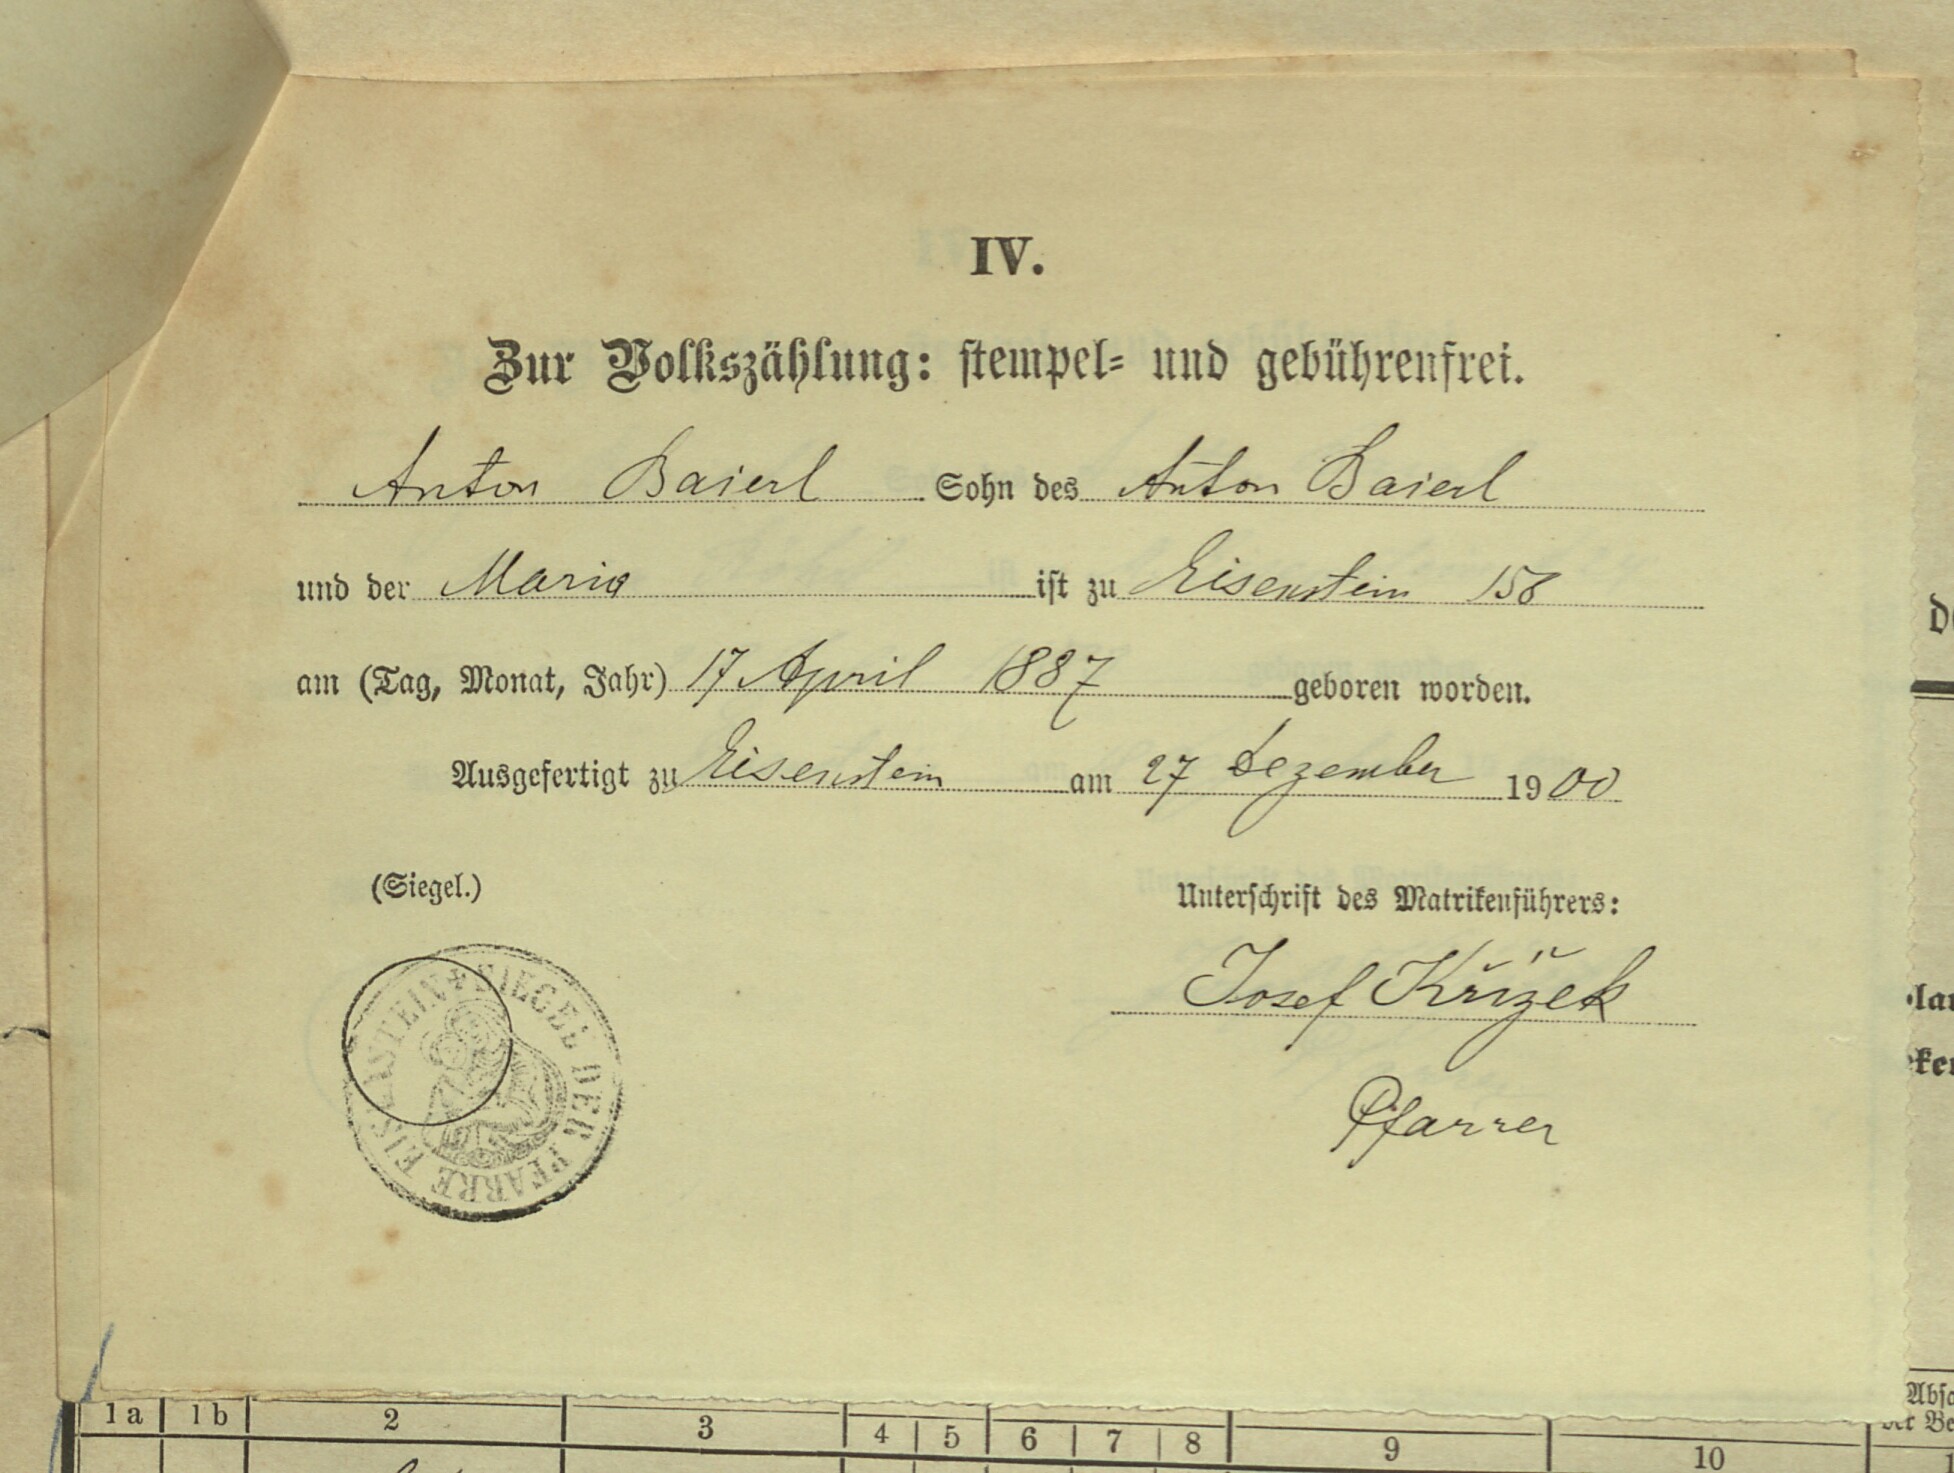 IV.
Zur Volkszählung: stempel- und gebührenfrei.
Anton Baierl Sohn des Anton Baierl
und der Maria ist zu Eisenstein 158
am (Tag, Monat, Jahr) 17 April 1887 geboren worden.
Ausgefertigt zu Eisenstein am 27 Dezember 1900
(Siegel.)
Unterschrift des Matrikenführers:
SIEGEL DER PFARRE EISENSTEIN
Josef Křížek
Pfarrer
1a 1b 2 3 4 5 6 7 8 9 10